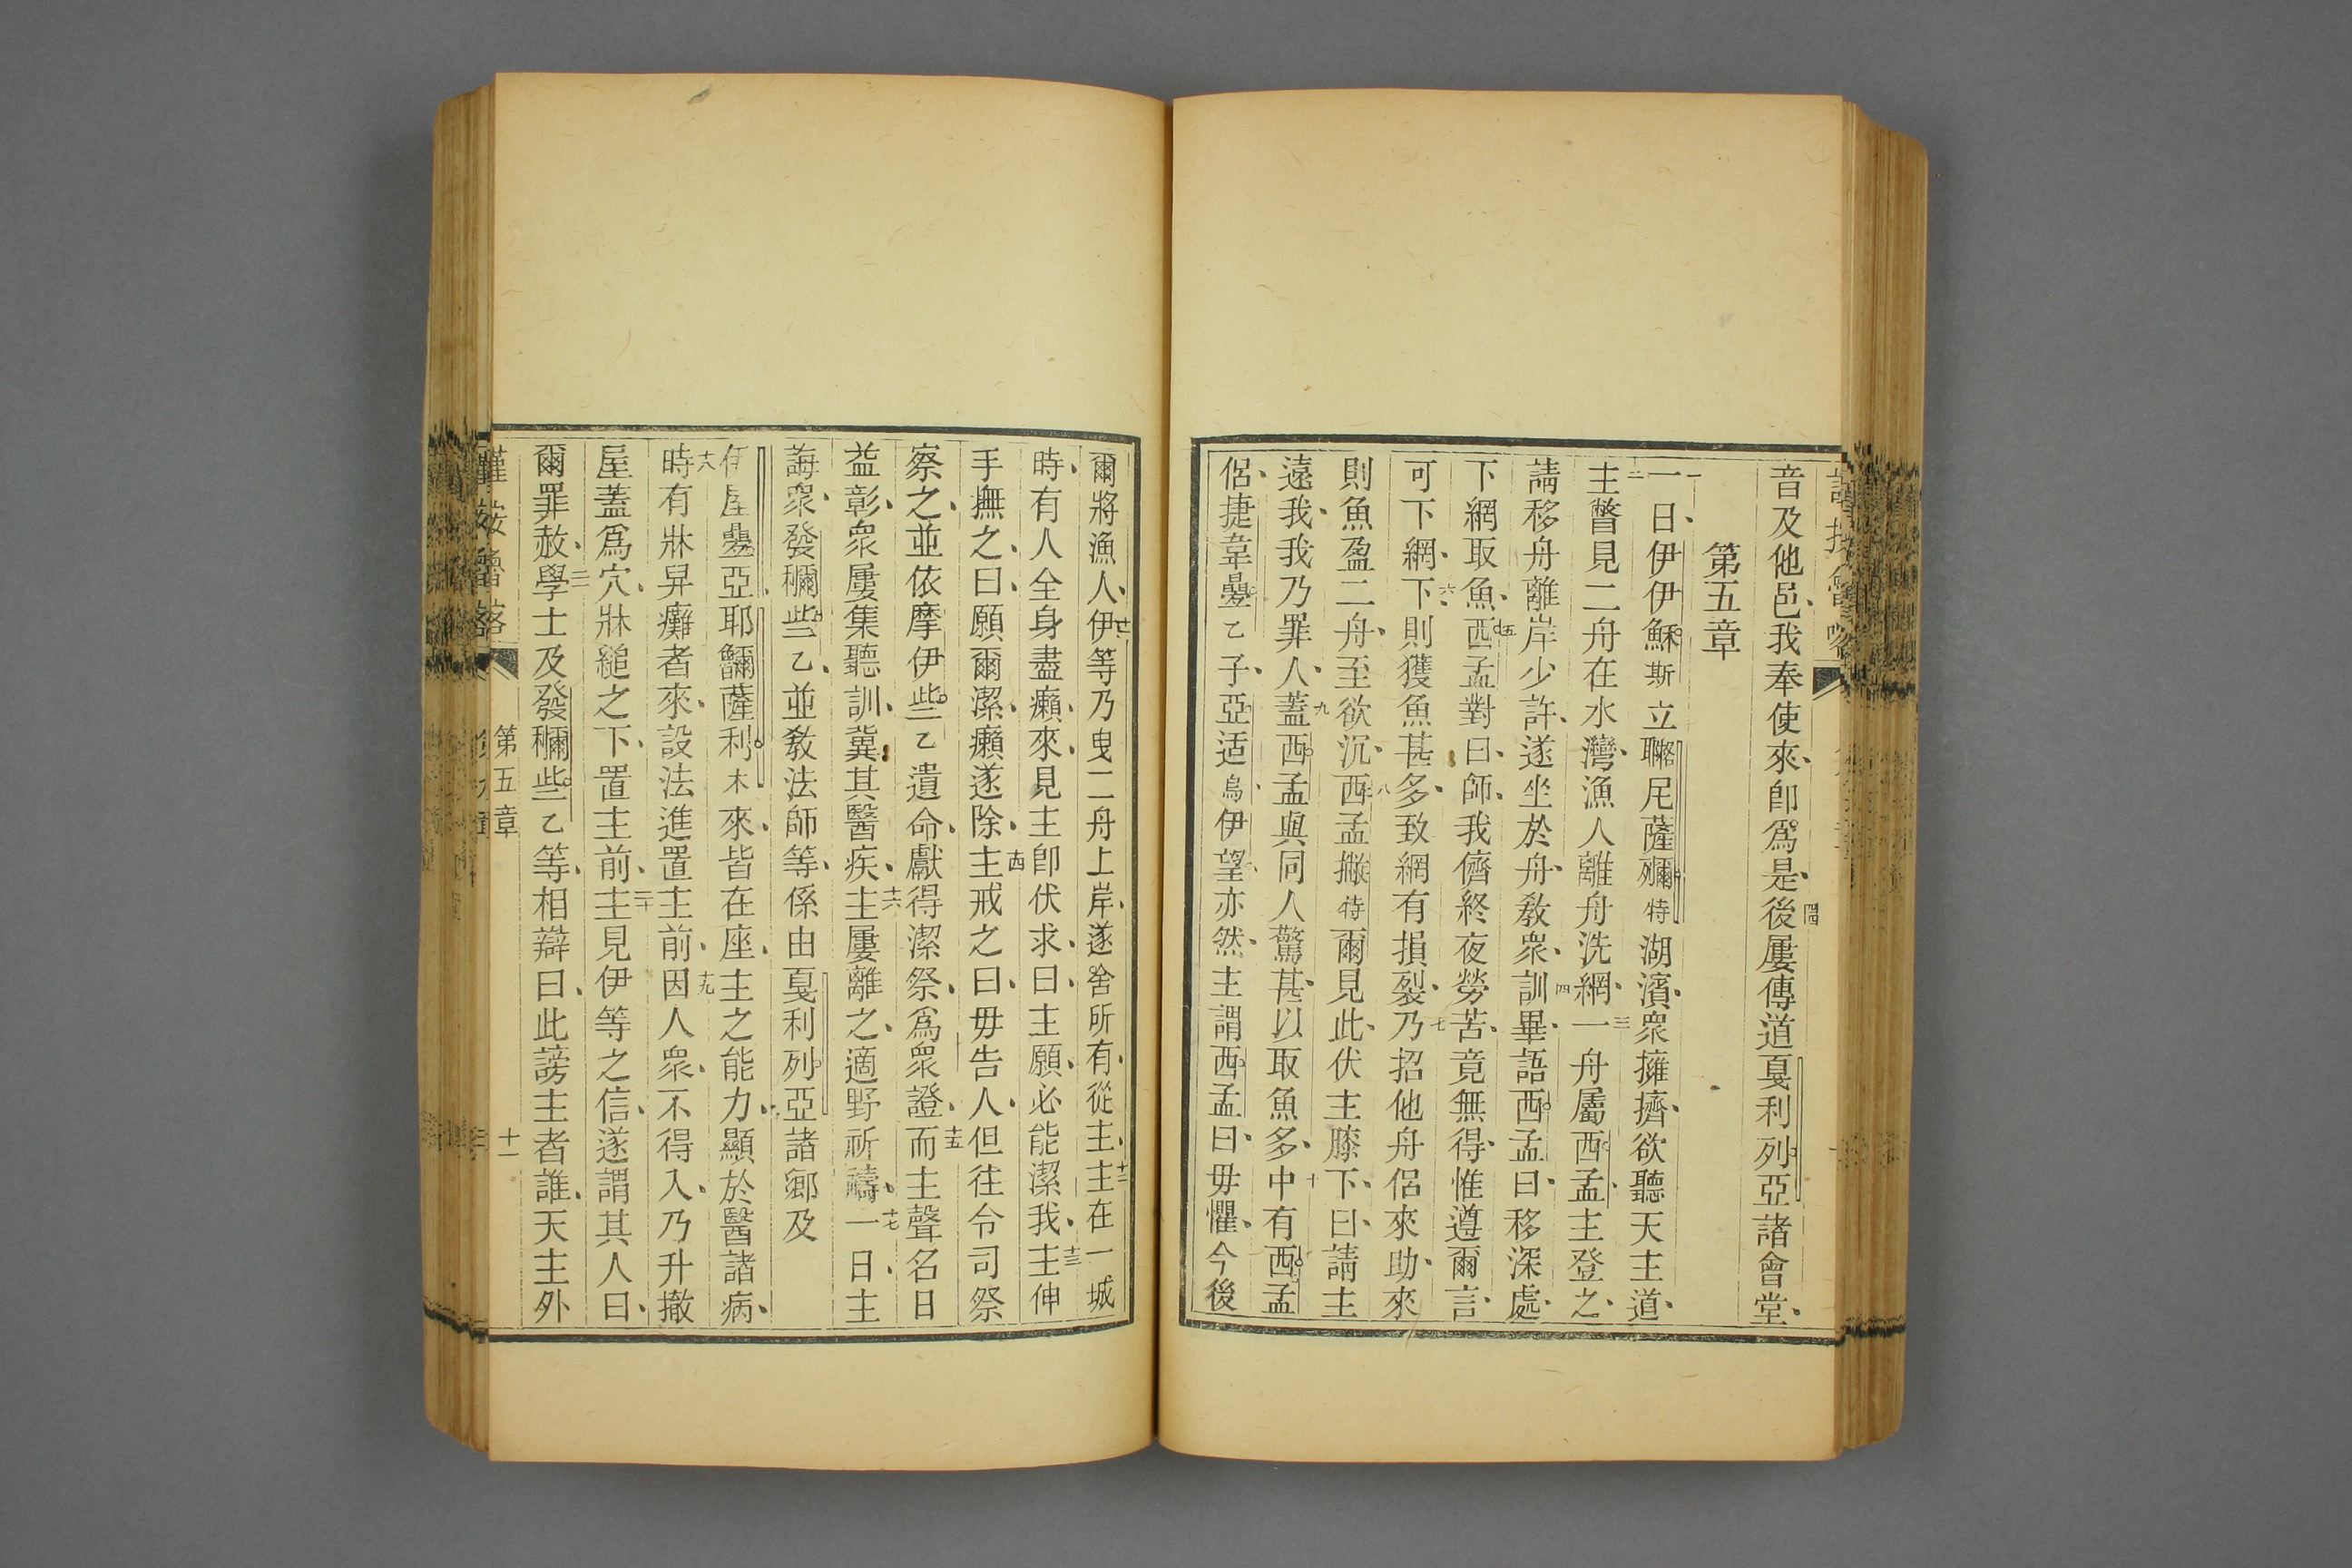 音及他邑、我奉使來、卽爲是、後屢傳道戛利列亞諸會堂、
第五章
一日、伊伊穌斯立尼薩彌特湖濱、衆擁擠、欲聽天主道、
主瞥見二舟在水灣、漁人離舟洗網、一舟屬西孟、主登之、
請移舟離岸少許、遂坐於舟、敎衆、訓畢、語西孟曰、移深處、
下網取魚、西孟對曰、師、我儕終夜勞苦、竟無得、惟遵爾言、
可下網、下則獲魚甚多、致網有損裂、乃招他舟侶來助、來
則魚盈二舟、至欲沉、西孟撇特爾見此、伏主膝下、曰、請主
遠我、我乃罪人、蓋西孟與同人驚甚、以取魚多、中有西孟
侶、捷韋乙子、亞适烏伊望、亦然、主謂西孟曰、毋懼、今後
爾將漁人、伊等乃曳二舟上岸、遂舍所有、從主、主在一城
時、有人全身盡癩、來見主卽伏求、曰、主願、必能潔我、主伸
手撫之、曰、願爾潔、癩遂除、主戒之曰、毋告人、但往令司祭
察之、並依摩伊些乙遺命、獻得潔祭、爲衆證、而主聲名日
益彰、衆屢集聽訓、冀其醫疾、主屢離之、適野祈禱、一日、主
誨衆、發穪些乙、並敎法師等、係由戛利列亞諸鄉及
亞耶薩利木來、皆在座、主之能力、顯於醫諸病、
時有牀舁癱者來、設法進置主前、因人衆、不得入、乃升撤
屋蓋爲穴、牀縋之下、置主前、主見伊等之信、遂謂其人曰、
爾罪赦、學士及發穪些乙等、相辯曰、此謗主者誰、天主外
第五章
十一